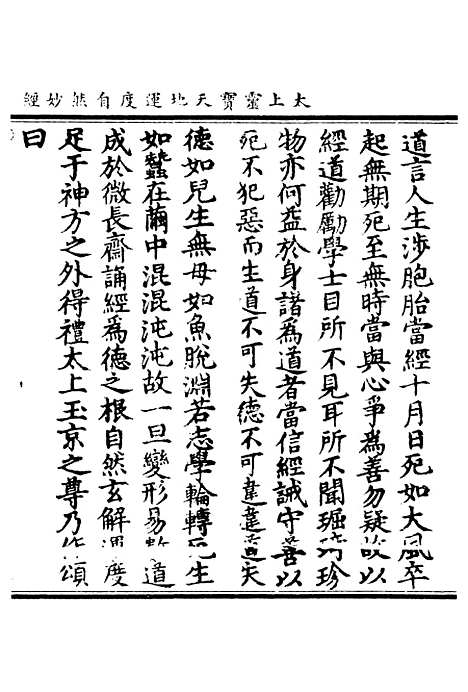 太上靈寶天地運度自然妙經
道言人生涉胞胎當經十月日死如大風卒
起無期死至無時當與心爭為善勿疑故以
經道勸勵學士目所不見耳所不聞琦珍
物亦何益於身諸為道者當信經誡守善以
死不犯惡而生道不可失德不可違違道失
德如兒生無母如魚脫淵若志學輪轉死生
如蠶在繭中混混沌沌故一旦變形易數道
成於微長齋誦經為德之根自然玄解運度
足于神方之外得禮太上玉京之尊乃作頌
曰